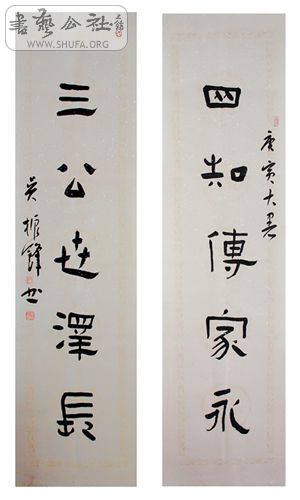 四知傳家永
庚寅大暑
三公世澤長
吴振鋒书
書藝公社
WWW.SHUFA.ORG